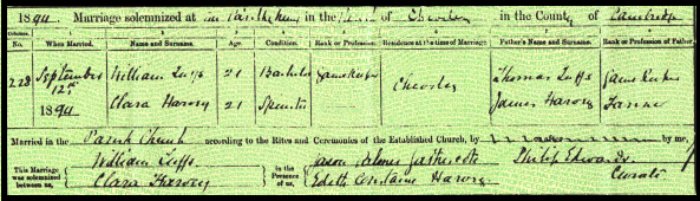 1894 Marriage solemnized at the Parish Church in the Parish of Cheveley in the County of Cambridge
Columns 1 2 3 4 5 6 7 8
No. When Married. Name and Surname. Age. Condition. Rank or Profession. Residence at the time of Marriage. Father's Name and Surname. Rank or Profession of Father.
228 September 12th William Tuffs 21 Bachelor Gamekeeper Cheveley Thomas Tuffs Gamekeeper
1894 Clara Harvey 21 Spinster James Harvey Farmer
Married in the Parish Church according to the Rites and Ceremonies of the Established Church, by by me,
This Marriage was solemnized between us, William Tuffs in the Presence of us, Philip Edwards
Clara Harvey Edith Constance Harvey Curate